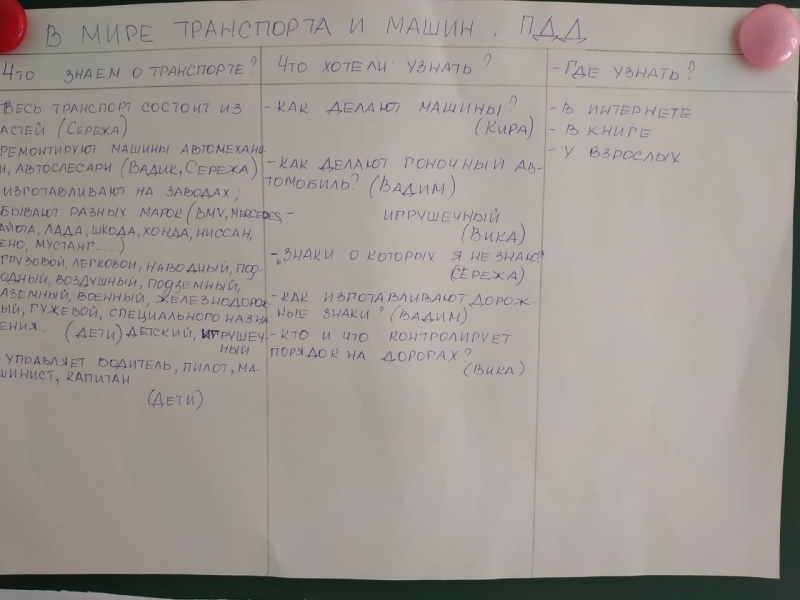 В МИРЕ ТРАНСПОРТА И МАШИН. ПДД.
ЧТО ЗНАЕМ О ТРАНСПОРТЕ?
ВЕСЬ ТРАНСПОРТ СОСТОИТ ИЗ
АСТЕЙ (СЕРЕЖА)
РЕМОНТИРУЮТ МАШИНЫ АВТОМЕХАНИ-
И, АВТОСЛЕСАРИ (ВАДИК, СЕРЕЖА)
ИЗГОТАВЛИВАЮТ НА ЗАВОДАХ;
БЫВАЮТ РАЗНЫХ МАРОК (BMV, MERCEDES,
АЙОТА, ЛАДА, ШКОДА, ХОНДА, НИССАН,
ЕНО, МУСТАНГ.....)
ГРУЗОВОЙ, ЛЕГКОВОЙ, НАВОДНЫЙ, ПОД-
ОДНЫЙ, ВОЗДУШНЫЙ, ПОДЗЕМНЫЙ,
АЗЕМНЫЙ, ВОЕННЫЙ, ЖЕЛЕЗНОДОРОЖ
ЫЙ, ГУЖЕВОЙ, СПЕЦИАЛЬНОГО НАЗНА
ЕНИЯ... (ДЕТИ) ДЕТСКИЙ, ИГРУШЕЧ-
НЫЙ
УПРАВЛЯЕТ ВОДИТЕЛЬ, ПИЛОТ, МА-
ШИНИСТ, КАПИТАН
(ДЕТИ)
ЧТО ХОТЕЛИ УЗНАТЬ?
- КАК ДЕЛАЮТ МАШИНЫ?
(КИРА)
- КАК ДЕЛАЮТ ГОНОЧНЫЙ АВ-
ТОМОБИЛЬ? (ВАДИМ)
- ИГРУШЕЧНЫЙ
(ВИКА)
- „ЗНАКИ О КОТОРЫХ Я НЕ ЗНАЮ?
(СЕРЕЖА)
- КАК ИЗГОТАВЛИВАЮТ ДОРОЖ-
НЫЕ ЗНАКИ? (ВАДИМ)
- КТО И ЧТО КОНТРОЛИРУЕТ
ПОРЯДОК НА ДОРОГАХ?
(ВИКА)
- ГДЕ УЗНАТЬ?
- В ИНТЕРНЕТЕ
- В КНИГЕ
- У ВЗРОСЛЫХ